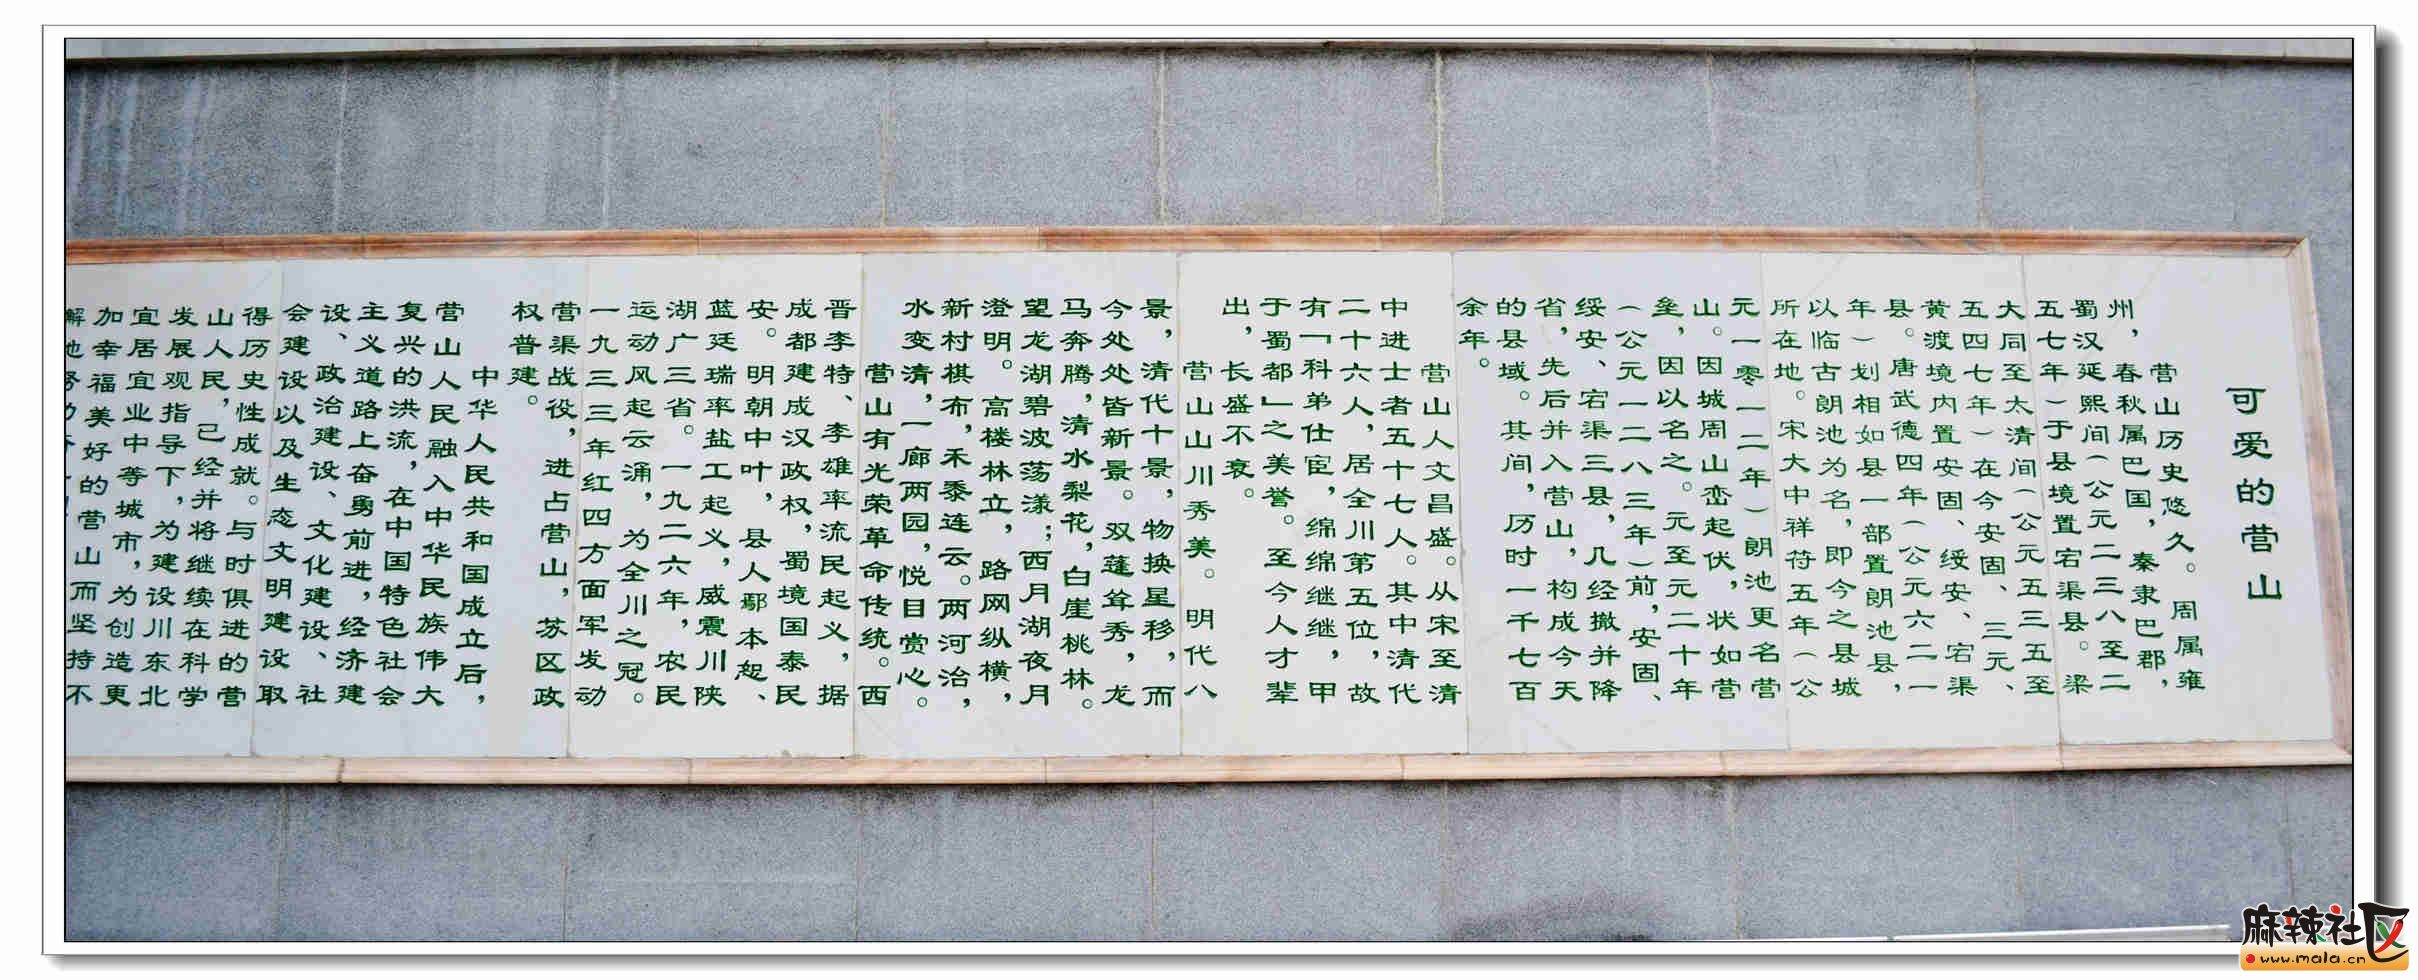 可爱的营山
营山历史悠久。周属雍
州，春秋属巴国，秦隶巴郡，
蜀汉延熙间（公元二三八至二
五七年）于县境置宕渠县。梁
大同至太清间（公元五三五至
五四七年）在今安固、三元、
黄渡境内置安固、绥安、宕渠
县。唐武德四年（公元六二一
年）划相如县一部置朗池县，
以临古朗池为名，即今之县城
所在地。宋大中祥符五年（公
元一零一二年）朗池更名营
山。因城周山峦起伏，状如营
垒，因以名之。元至元二十年
（公元一二八三年）前，安固、
绥安、宕渠三县，几经撤并降
省，先后并入营山，构成今天
的县域。其间，历时一千七百
余年。
营山人文昌盛。从宋至清
中进士者五十七人。其中清代
二十六人，居全川第五位，故
有「科弟仕宦，绵绵继继，甲
于蜀都」之美誉。至今人才辈
出，长盛不衰。
营山山川秀美。明代八
景，清代十景，物换星移，而
今处处皆新景。双蓬耸秀，龙
马奔腾，清水梨花，白崖桃林。
望龙湖碧波荡漾；西月湖夜月
澄明。高楼林立，路网纵横，
新村棋布，禾黍连云。两河治，
水变清，一廊两园，悦目赏心。
营山有光荣革命传统。西
晋李特、李雄率流民起义，据
成都建成汉政权，蜀境国泰民
安。明朝中叶，县人鄢本恕、
蓝廷瑞率盐工起义，威震川陕
湖广三省。一九二六年，农民
运动风起云涌，为全川之冠。
一九三三年红四方面军发动
营渠战役，进占营山，苏区政
权普建。
中华人民共和国成立后，
营山人民融入中华民族伟大
复兴的洪流，在中国特色社会
主义道路上奋勇前进，经济建
设、政治建设、文化建设、社
会建设以及生态文明建设取
得历史性成就。与时俱进的营
山人民，已经并将继续在科学
发展观指导下，为建设川东北
宜居宜业中等城市，为创造更
加幸福美好的营山而坚持不
麻辣社区
www.mala.cn